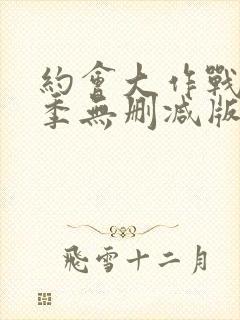 約會大作戰
季無刪減版
飛雪十二月